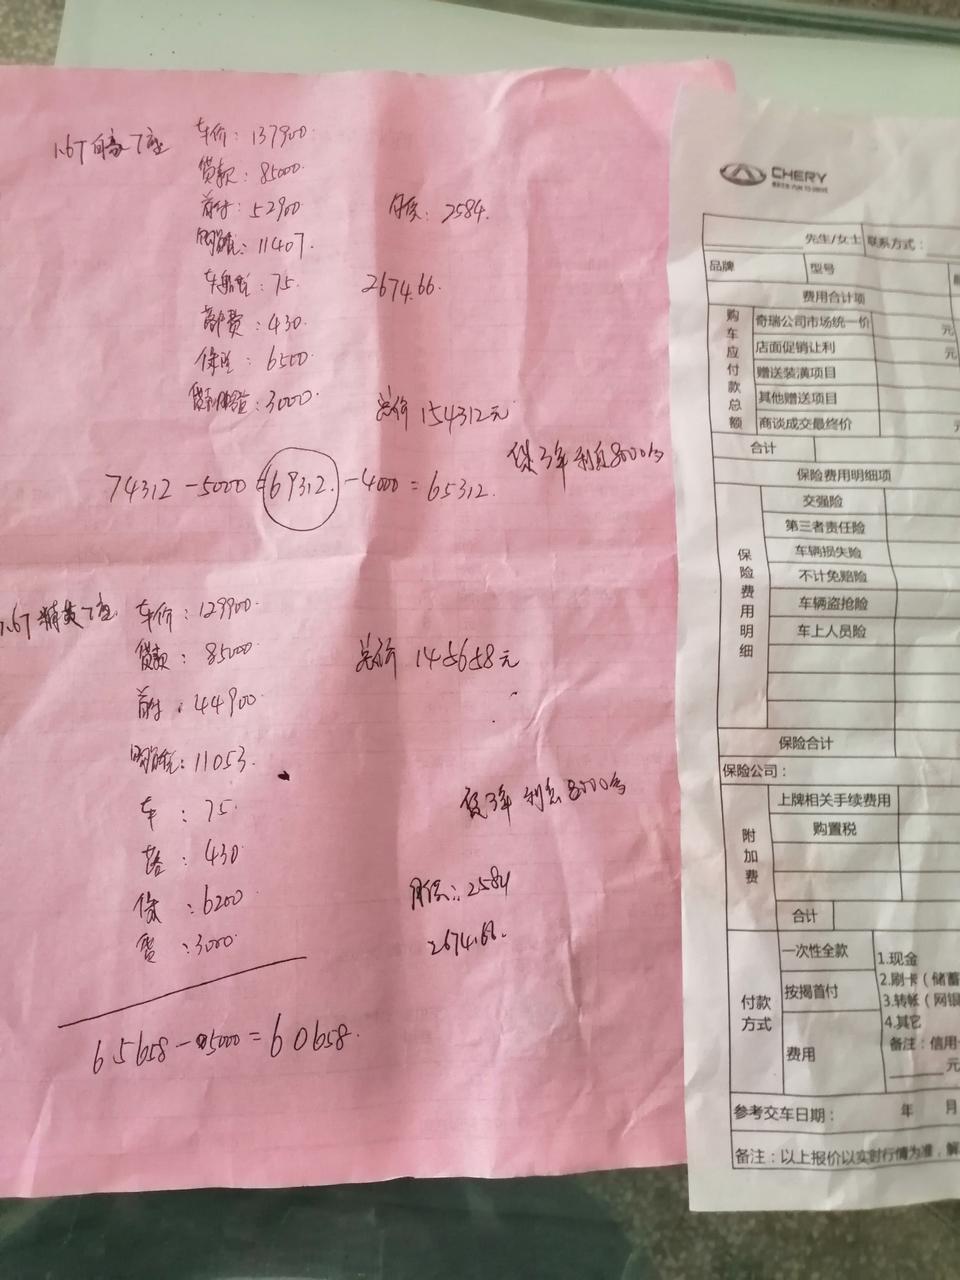 1.6T 自豪 7座
车价：137900.
贷款：85000.
首付：52900
月供：2584.
购置税：11407.
车船税：75.
2674.66.
:430.
保险：6500
:3000.
总价 154312元
贷3年 利息8000多
74312 - 5000 = 69312. - 4000 = 65312.
1.6T 精英7座
车价：129900.
贷款：85000.
总价 145658元
首付：44900
购置税：11053.
贷3年 利息8000多
车：75.
:430
保：6200
月供：2584
:3000.
2674.66.
65658 - 5000 = 60658.
CHERY
先生/女士 联系方式：
品牌 型号
费用合计项
购车应付款总额
奇瑞公司市场统一价 元
店面促销让利 元
赠送装潢项目
其他赠送项目
商谈成交最终价
合计
保险费用明细项
保险费用明细
交强险
第三者责任险
车辆损失险
不计免赔险
车辆盗抢险
车上人员险
保险合计
保险公司：
附加费
上牌相关手续费用
购置税
合计
付款方式
一次性全款
按揭首付
费用
1.现金
2.刷卡（储蓄
3.转帐（网银
4.其它
备注：信用
元
参考交车日期： 年 月
备注：以上报价以实时行情为准，解